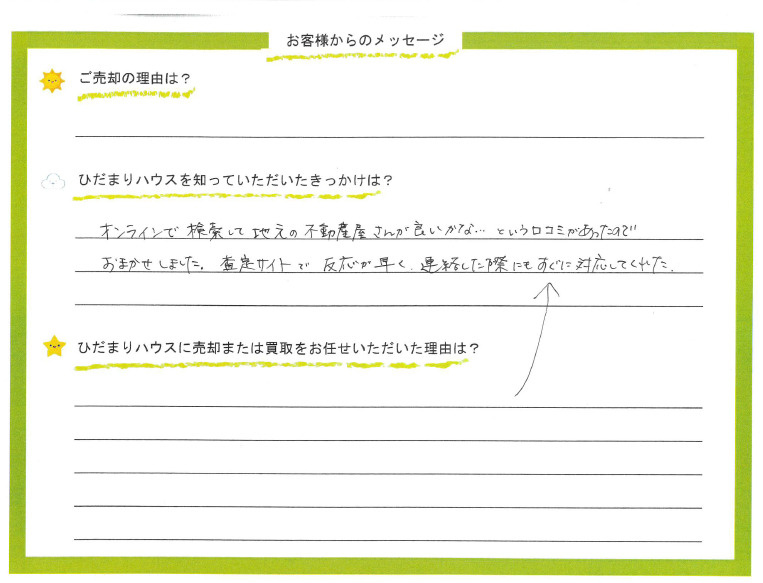 お客様からのメッセージ
ご売却の理由は？
ひだまりハウスを知っていただいたきっかけは？
オンラインで検索して地元の不動産屋さんが良いかな…という口コミがあったので
おまかせしました。査定サイトで反応が早く、連絡した際にもすぐに対応してくれた。
ひだまりハウスに売却または買取をお任せいただいた理由は？